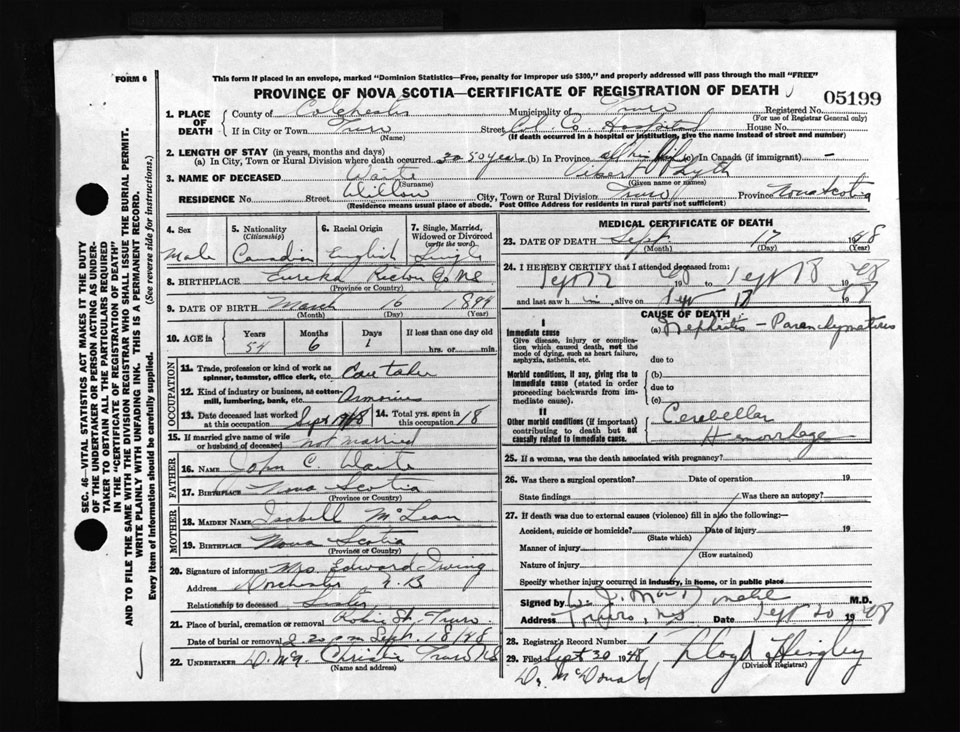 FORM 6
This form if placed in an envelope, marked "Dominion Statistics—Free, penalty for improper use $300," and properly addressed will pass through the mail "FREE"
PROVINCE OF NOVA SCOTIA—CERTIFICATE OF REGISTRATION OF DEATH
05199
1. PLACE OF DEATH
County of Colchester Municipality of Truro Registered No.
(For use of Registrar General only)
If in City or Town Truro Street Col. Co. Hospital House No.
(Name) (If death occurred in a hospital or institution, give the name instead of street and number)
2. LENGTH OF STAY (in years, months and days)
(a) In City, Town or Rural Division where death occurred 50 years (b) In Province all his life (c) In Canada (if immigrant) —
3. NAME OF DECEASED Waite
(Surname) (Given name or names)
RESIDENCE No. Street Willow City, Town or Rural Division Truro Province Nova Scotia
(Residence means usual place of abode. Post Office Address for residents in rural parts not sufficient)
4. Sex Male
5. Nationality (Citizenship) Canadian
6. Racial Origin English
7. Single, Married, Widowed or Divorced (write the word) Single
8. BIRTHPLACE Eureka Pictou Co NS
(Province or Country)
9. DATE OF BIRTH March 16 1894
(Month) (Day) (Year)
10. AGE in Years 54 Months 6 Days 1 If less than one day old hrs. or min.
OCCUPATION
11. Trade, profession or kind of work as spinner, teamster, office clerk, etc. Caretaker
12. Kind of industry or business, as cotton mill, lumbering, bank, etc. Armouries
13. Date deceased last worked at this occupation Sept 1948 14. Total yrs. spent in this occupation 18
15. If married give name of wife or husband of deceased not married
FATHER
16. NAME John C. Waite
17. BIRTHPLACE Nova Scotia
(Province or Country)
MOTHER
18. MAIDEN NAME Isabell McLean
19. BIRTHPLACE Nova Scotia
(Province or Country)
20. Signature of informant Mrs. Edward Irving
Address Dorchester N.B
Relationship to deceased Sister
21. Place of burial, cremation or removal Robie St. Truro
Date of burial or removal 2.30 p.m Sept. 18/48
22. UNDERTAKER D. McQ. Christie Truro NS
(Name and address)
MEDICAL CERTIFICATE OF DEATH
23. DATE OF DEATH Sept. 17 1948
(Month) (Day) (Year)
24. I HEREBY CERTIFY that I attended deceased from:
Sept 12 48 to Sept 18 1948
and last saw him alive on Sept 17 1948
CAUSE OF DEATH
I
Immediate cause
Give disease, injury or complication which caused death, not the mode of dying, such as heart failure, asphyxia, asthenia, etc.
(a) Nephritis – Parenchymatous
due to
Morbid conditions, if any, giving rise to immediate cause (stated in order proceeding backwards from immediate cause).
(b)
due to
(c)
II
Other morbid conditions (if important) contributing to death but not causally related to immediate cause.
Cerebellar
Hemorrhage
25. If a woman, was the death associated with pregnancy?
26. Was there a surgical operation? Date of operation 19
State findings Was there an autopsy?
27. If death was due to external causes (violence) fill in also the following:—
Accident, suicide or homicide? Date of injury 19
(State which)
Manner of injury
(How sustained)
Nature of injury
Specify whether injury occurred in industry, in home, or in public place
Signed by M.D.
Address Truro, N.S. Date Sept 20 1948
28. Registrar's Record Number 1
29. Filed Sept 30 1948 Lloyd Hingley
(Division Registrar)
Dr. McDonald
SEC. 46—VITAL STATISTICS ACT MAKES IT THE DUTY OF THE UNDERTAKER OR PERSON ACTING AS UNDERTAKER TO OBTAIN ALL THE PARTICULARS REQUIRED IN THE "CERTIFICATE OF REGISTRATION OF DEATH" AND TO FILE THE SAME WITH THE DIVISION REGISTRAR WHO SHALL ISSUE THE BURIAL PERMIT.
WRITE PLAINLY WITH UNFADING INK. THIS IS A PERMANENT RECORD.
Every item of information should be carefully supplied. (See reverse side for instructions.)